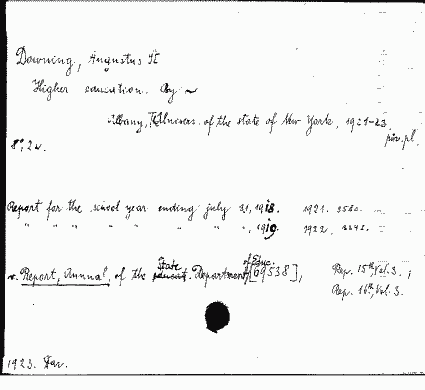 Downing, Augustus S
Higher education. By ~
Albany, Univers. of the state of New York, 1921-23.
pix. pl.
8°, 2v.
Report for the school year ending July 31, 1918. 1921. 355s.
" " " " " " " ", 1919. 1922. 334s.
v. Report, Annual, of the State Department of Educ. [69538], Rep. 15th, Vol. 3. ;
Rep. 16th, Vol. 3.
1923. Jan.